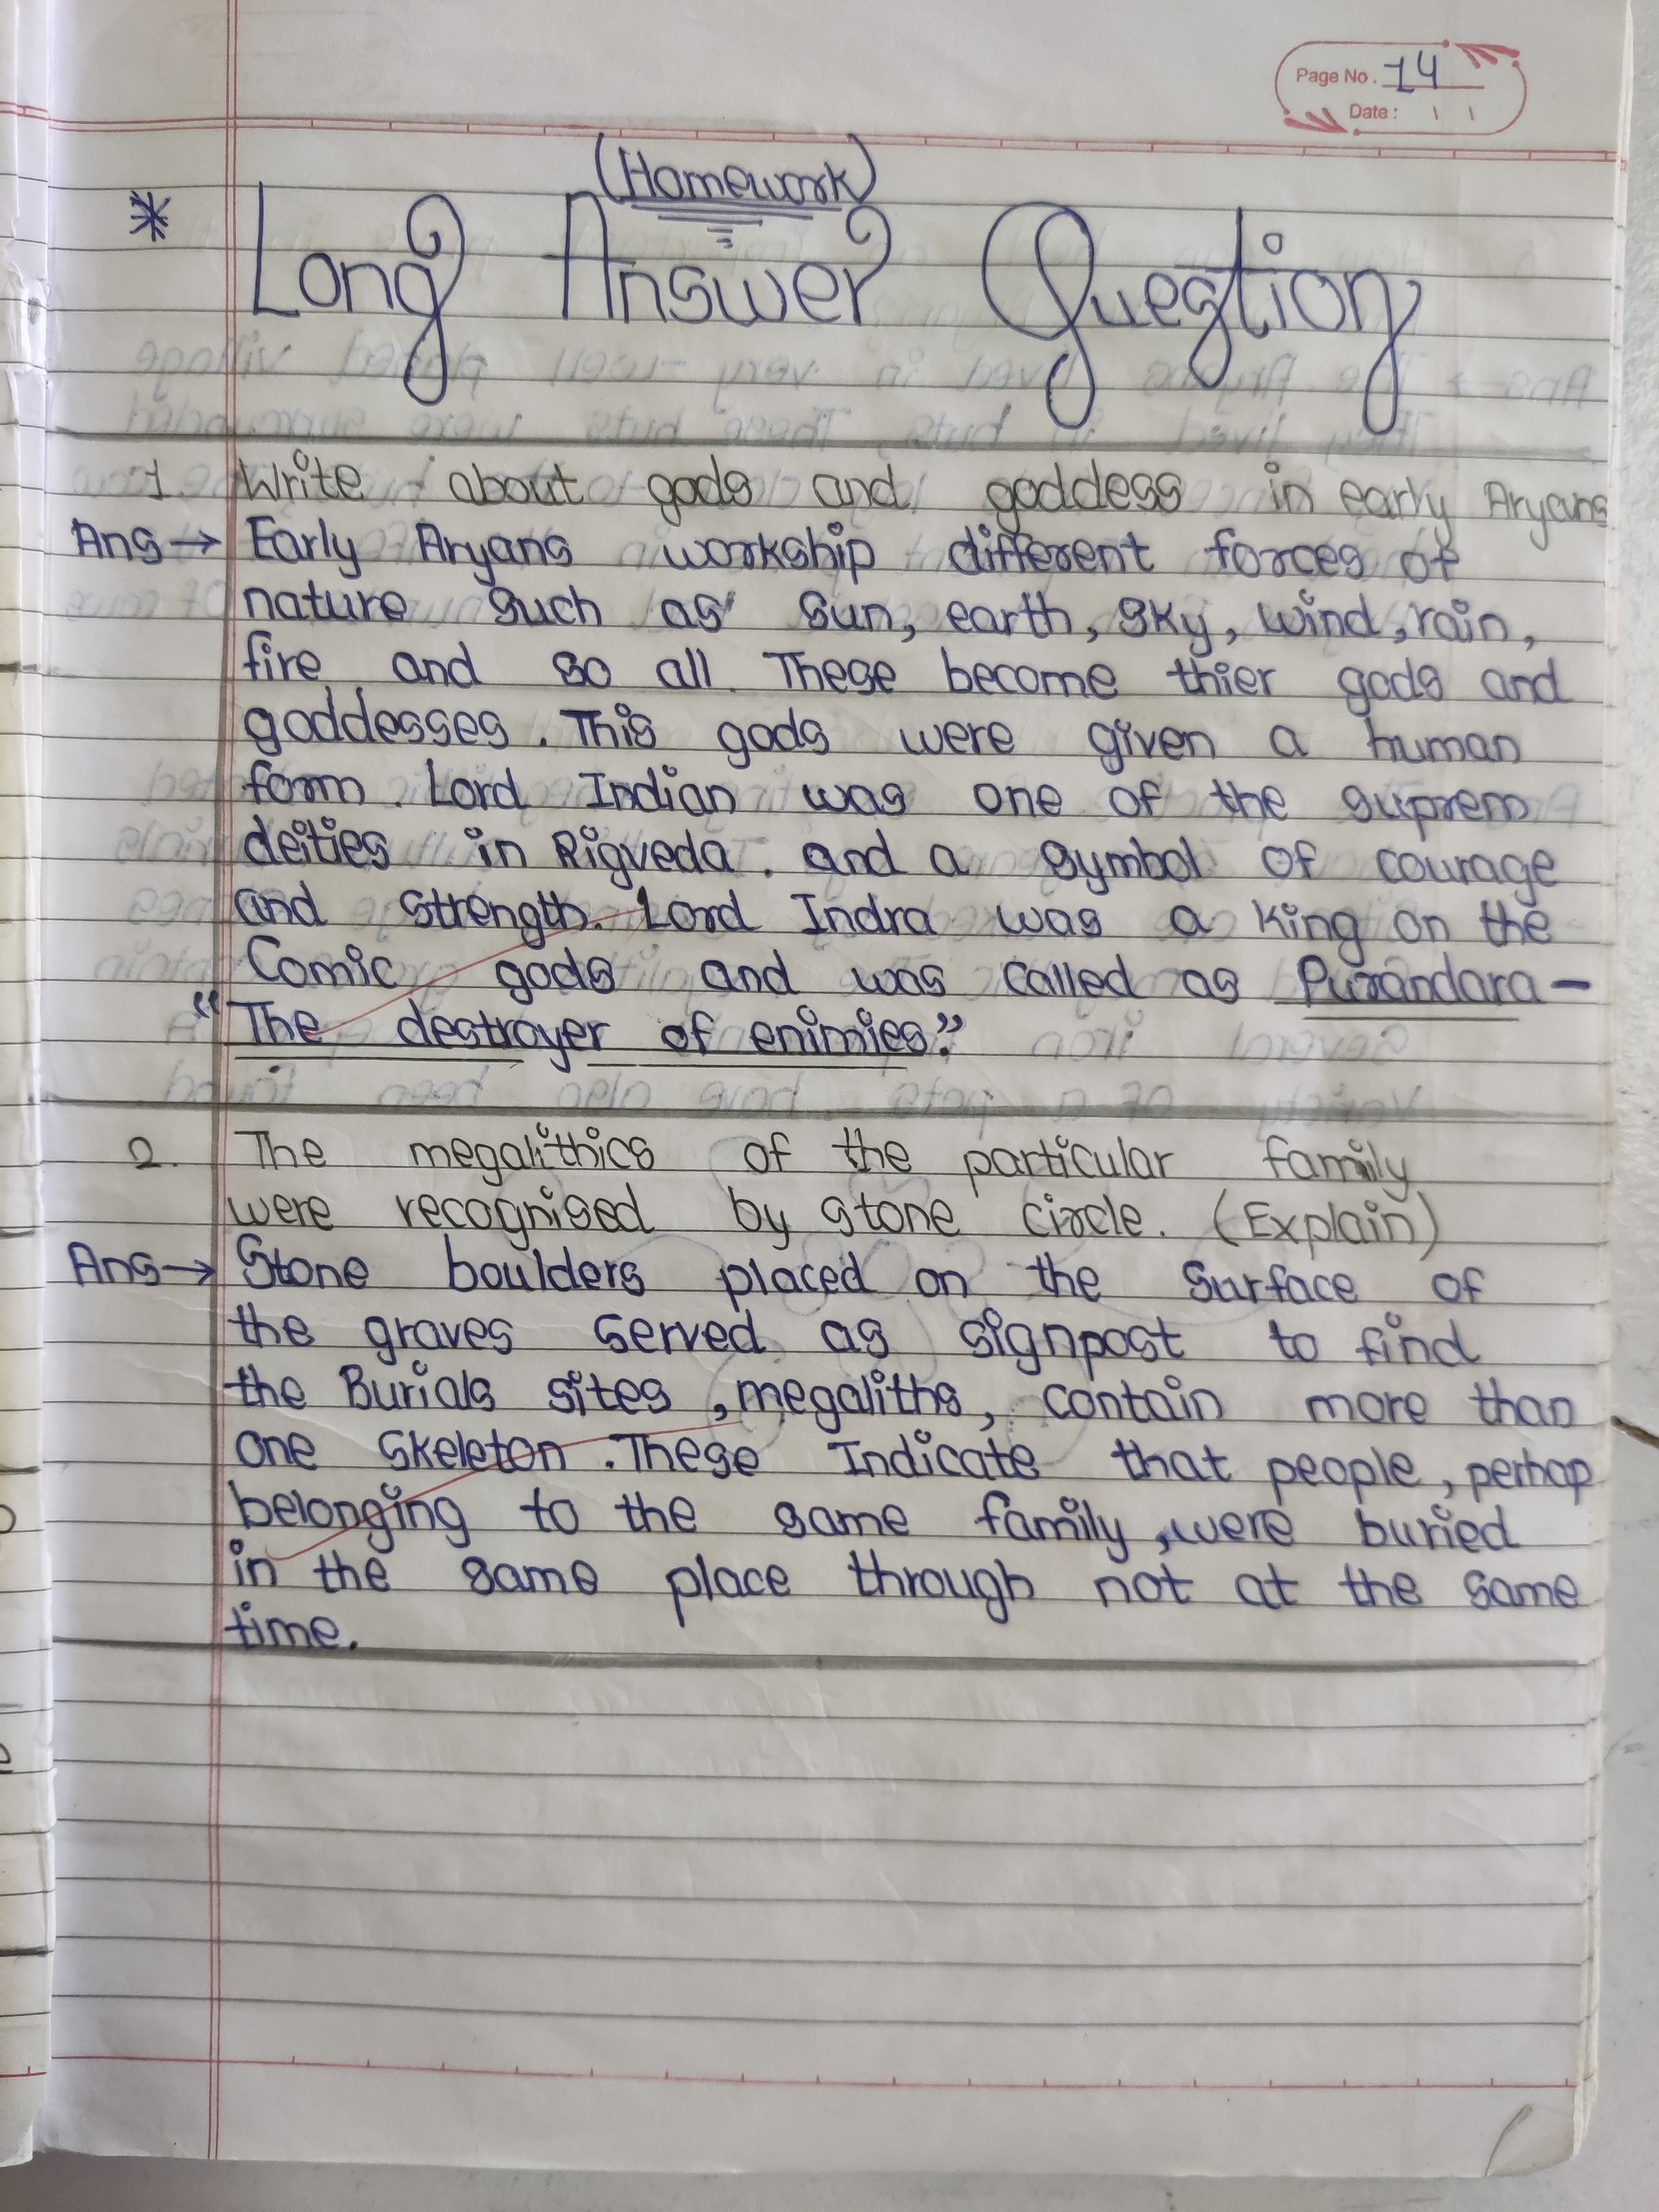 Page No. 14
Date :
(Homework)
* Long Answer Question
1. Write about gods and goddess in early Aryans
Ans → Early Aryans workship different forces of
nature such as sun, earth, sky, wind, rain,
fire and so all. These become thier gods and
goddesses. This gods were given a human
form. Lord Indian was one of the suprem
deities in Rigveda. and a symbol of courage
and strength. Lord Indra was a king on the
Comic gods and was called as Purandara -
"The destroyer of enimies."
2. The megalithics of the particular family
were recognised by stone circle. (Explain)
Ans → Stone boulders placed on the surface of
the graves served as signpost to find
the Burials sites, megaliths, contain more than
one skeleton. These Indicate that people, perhap
belonging to the same family, were buried
in the same place through not at the same
time.